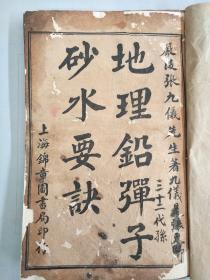 嚴陵張九儀先生著九儀
三十三代孫
地理鉛彈子
砂水要訣
上海錦章圖書局印行